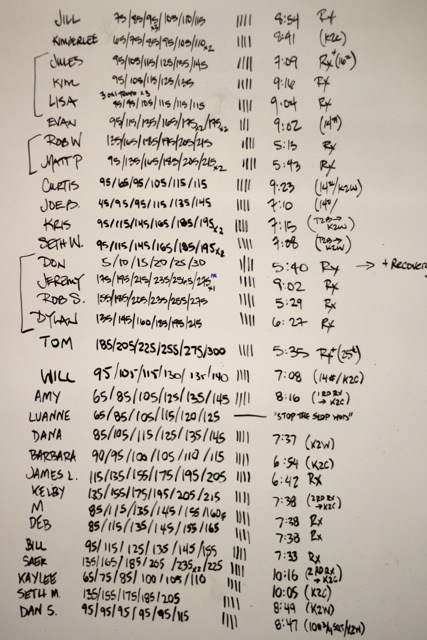 JILL 75/85/95/105/110/115 |||| 8:54 Rx
KIMBERLEE 65/75/85/95/105/110x2 |||| 8:41 (K2C)
JULES 95/105/115/125/135/145 |||| 7:09 Rx+(16#)
KIM 95/105/115/125/135 |||| 9:16 Rx
LISA 95/95/105/115/115/115 |||| 9:04 Rx
EVAN 95/115/135/165/175x2/175x2 |||| 9:02 (14#)
ROB W 135/165/185/195/205/215 |||| 5:13 Rx
MATT P 95/135/165/185/205/215x2 |||| 5:43 Rx
CURTIS 95/65/95/105/115/115 |||| 9:23 (14#/K2W)
JOE B. 45/95/95/115/135/145 |||| 7:10 (14#)
KRIS 95/115/145/165/185/195x2 |||| 7:15 (T2B→ K2W)
SETH W. 95/115/145/165/185/195x2 |||| 7:08 (T2B→ K2W)
DON 5/10/15/20/25/30 |||| 5:40 Rx → + RECOVERY
JEREMY 175/195/215/235/255/275 |||| 9:02 Rx
ROB S. 155/185/205/235/255/275 |||| 5:29 Rx
DYLAN 135/145/160/185/195/215 |||| 6:27 Rx
TOM 185/205/225/255/275/300 |||| 5:35 Rx+(25#)
WILL 95/105/115/130/135/140 |||| 7:08 (14#/K2C)
AMY 65/85/105/125/135/145 |||| 8:16 (1RD RX → K2C)
LUANNE 65/85/105/115/120/125 — "STOP THE SLOP WOD"
DANA 85/105/115/125/135/145 |||| 7:37 (K2W)
BARBARA 90/95/100/105/110/115 |||| 6:54 (K2C)
JAMES L. 115/135/155/175/195/205 |||| 6:42 Rx
KELBY 135/155/175/195/205/215 |||| 7:38 (2RD RX → K2C)
M 85/115/135/145/155/160 |||| 7:38 Rx
DEB 85/115/135/145/155/165 |||| 7:38 Rx
BILL 95/115/125/135/145/155 |||| 7:33 Rx
135/165/185/205/235x2/225 |||| 10:16 (2RD RX → K2C)
KAYLEE 65/75/85/100/105/110 |||| 10:05 (K2C)
SETH M. 135/155/175/185/205 |||| 8:49 (K2W)
DAN S. 95/95/95/95/95/115 |||| 8:47